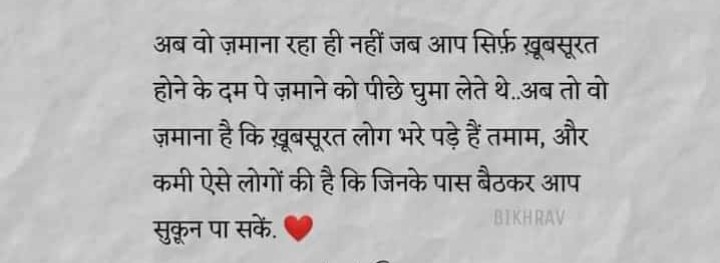 अब वो ज़माना रहा ही नहीं जब आप सिर्फ़ ख़ूबसूरत
होने के दम पे ज़माने को पीछे घुमा लेते थे..अब तो वो
ज़माना है कि ख़ूबसूरत लोग भरे पड़े हैं तमाम, और
कमी ऐसे लोगों की है कि जिनके पास बैठकर आप
सुकून पा सकें. ❤️
BIKHRAV